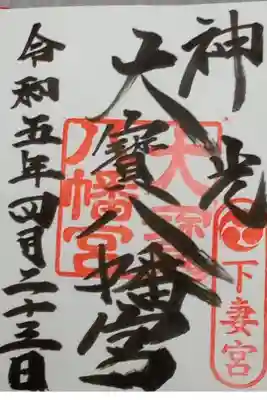 神光
下妻宮
大寳八幡宮
大寳
八幡宮
令和五年四月二十三日